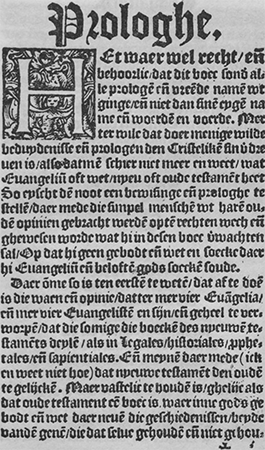 Prologhe.
HEt waer wel recht/eñ
behoorlic/dat dit boec sond͛ al
le prologẽ eñ vreẽde namẽ wt
ginge/eñ niet dan sinẽ eygẽ na
me eñ woordẽ en voerde. Mer
ter wile dat doer menige wilde
beduydenisse eñ prologen den Cristelikẽ sin v͛dre
uen is/also datmẽ schier niet meer en weet/wat
Euangeliũ oft wet/nyeu oft oude testamẽt heet
So eyscht dẽ noot een bewisinge eñ prologhe te
stellẽ/daer mede die simpel menschẽ wt harẽ ou
dẽ opinien gebracht werdẽ optẽ rechten wech eñ
ghewesen worde wat hi in desen boec v͛wachten
sal/Op dat hi geen gebodt eñ wet en soecke daer
hi Euangeliũ eñ belofte gods soeckẽ soude.
Daer õme so is ten eerstẽ te wetẽ/dat af te doẽ
is die waen eñ opinie/dat ter mer vier Euãgelia/
eñ mer vier Euangelistẽ en sijn/eñ geheel te ver-
worpẽ/dat die somige die boeckẽ des nyeuwẽ te-
stamẽts deylẽ/als in Legales/historiales/prophe-
tales/eñ sapientiales. Eñ meynẽ daer mede (ick
en weet niet hoe) dat nyeuwe testamẽt dẽ oudẽ
te gelijckẽ. Maer vastelic te houdẽ is/ghelijc als
dat oude testamẽt eẽ boec is/waer inne gods ge
bodt eñ wet daer neuẽ die geschiedenissen/beyde
vandẽ genẽ/die dat selue gehoudẽ eñ niet gehou-